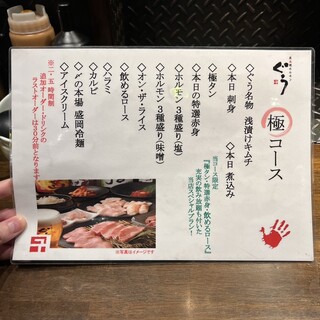 ぐう
極コース
◇ぐう名物 浅漬けキムチ
◇本日 刺身 ◇本日 煮込み
◇極タン
◇本日の特選赤身
◇ホルモン3種盛り(塩)
◇ホルモン3種盛り(味噌)
◇オン・ザ・ライス
◇飲めるロース
◇ハラミ
◇カルビ
◇〆の本場 盛岡冷麺
◇アイスクリーム
当コース限定
『極タン・特選赤身・飲めるロース』
充実の飲み放題も付いた
当店スペシャルプラン!
※二・五時間制
追加オーダー・ドリンクの
ラストオーダーは30分前となります。
※写真はイメージです